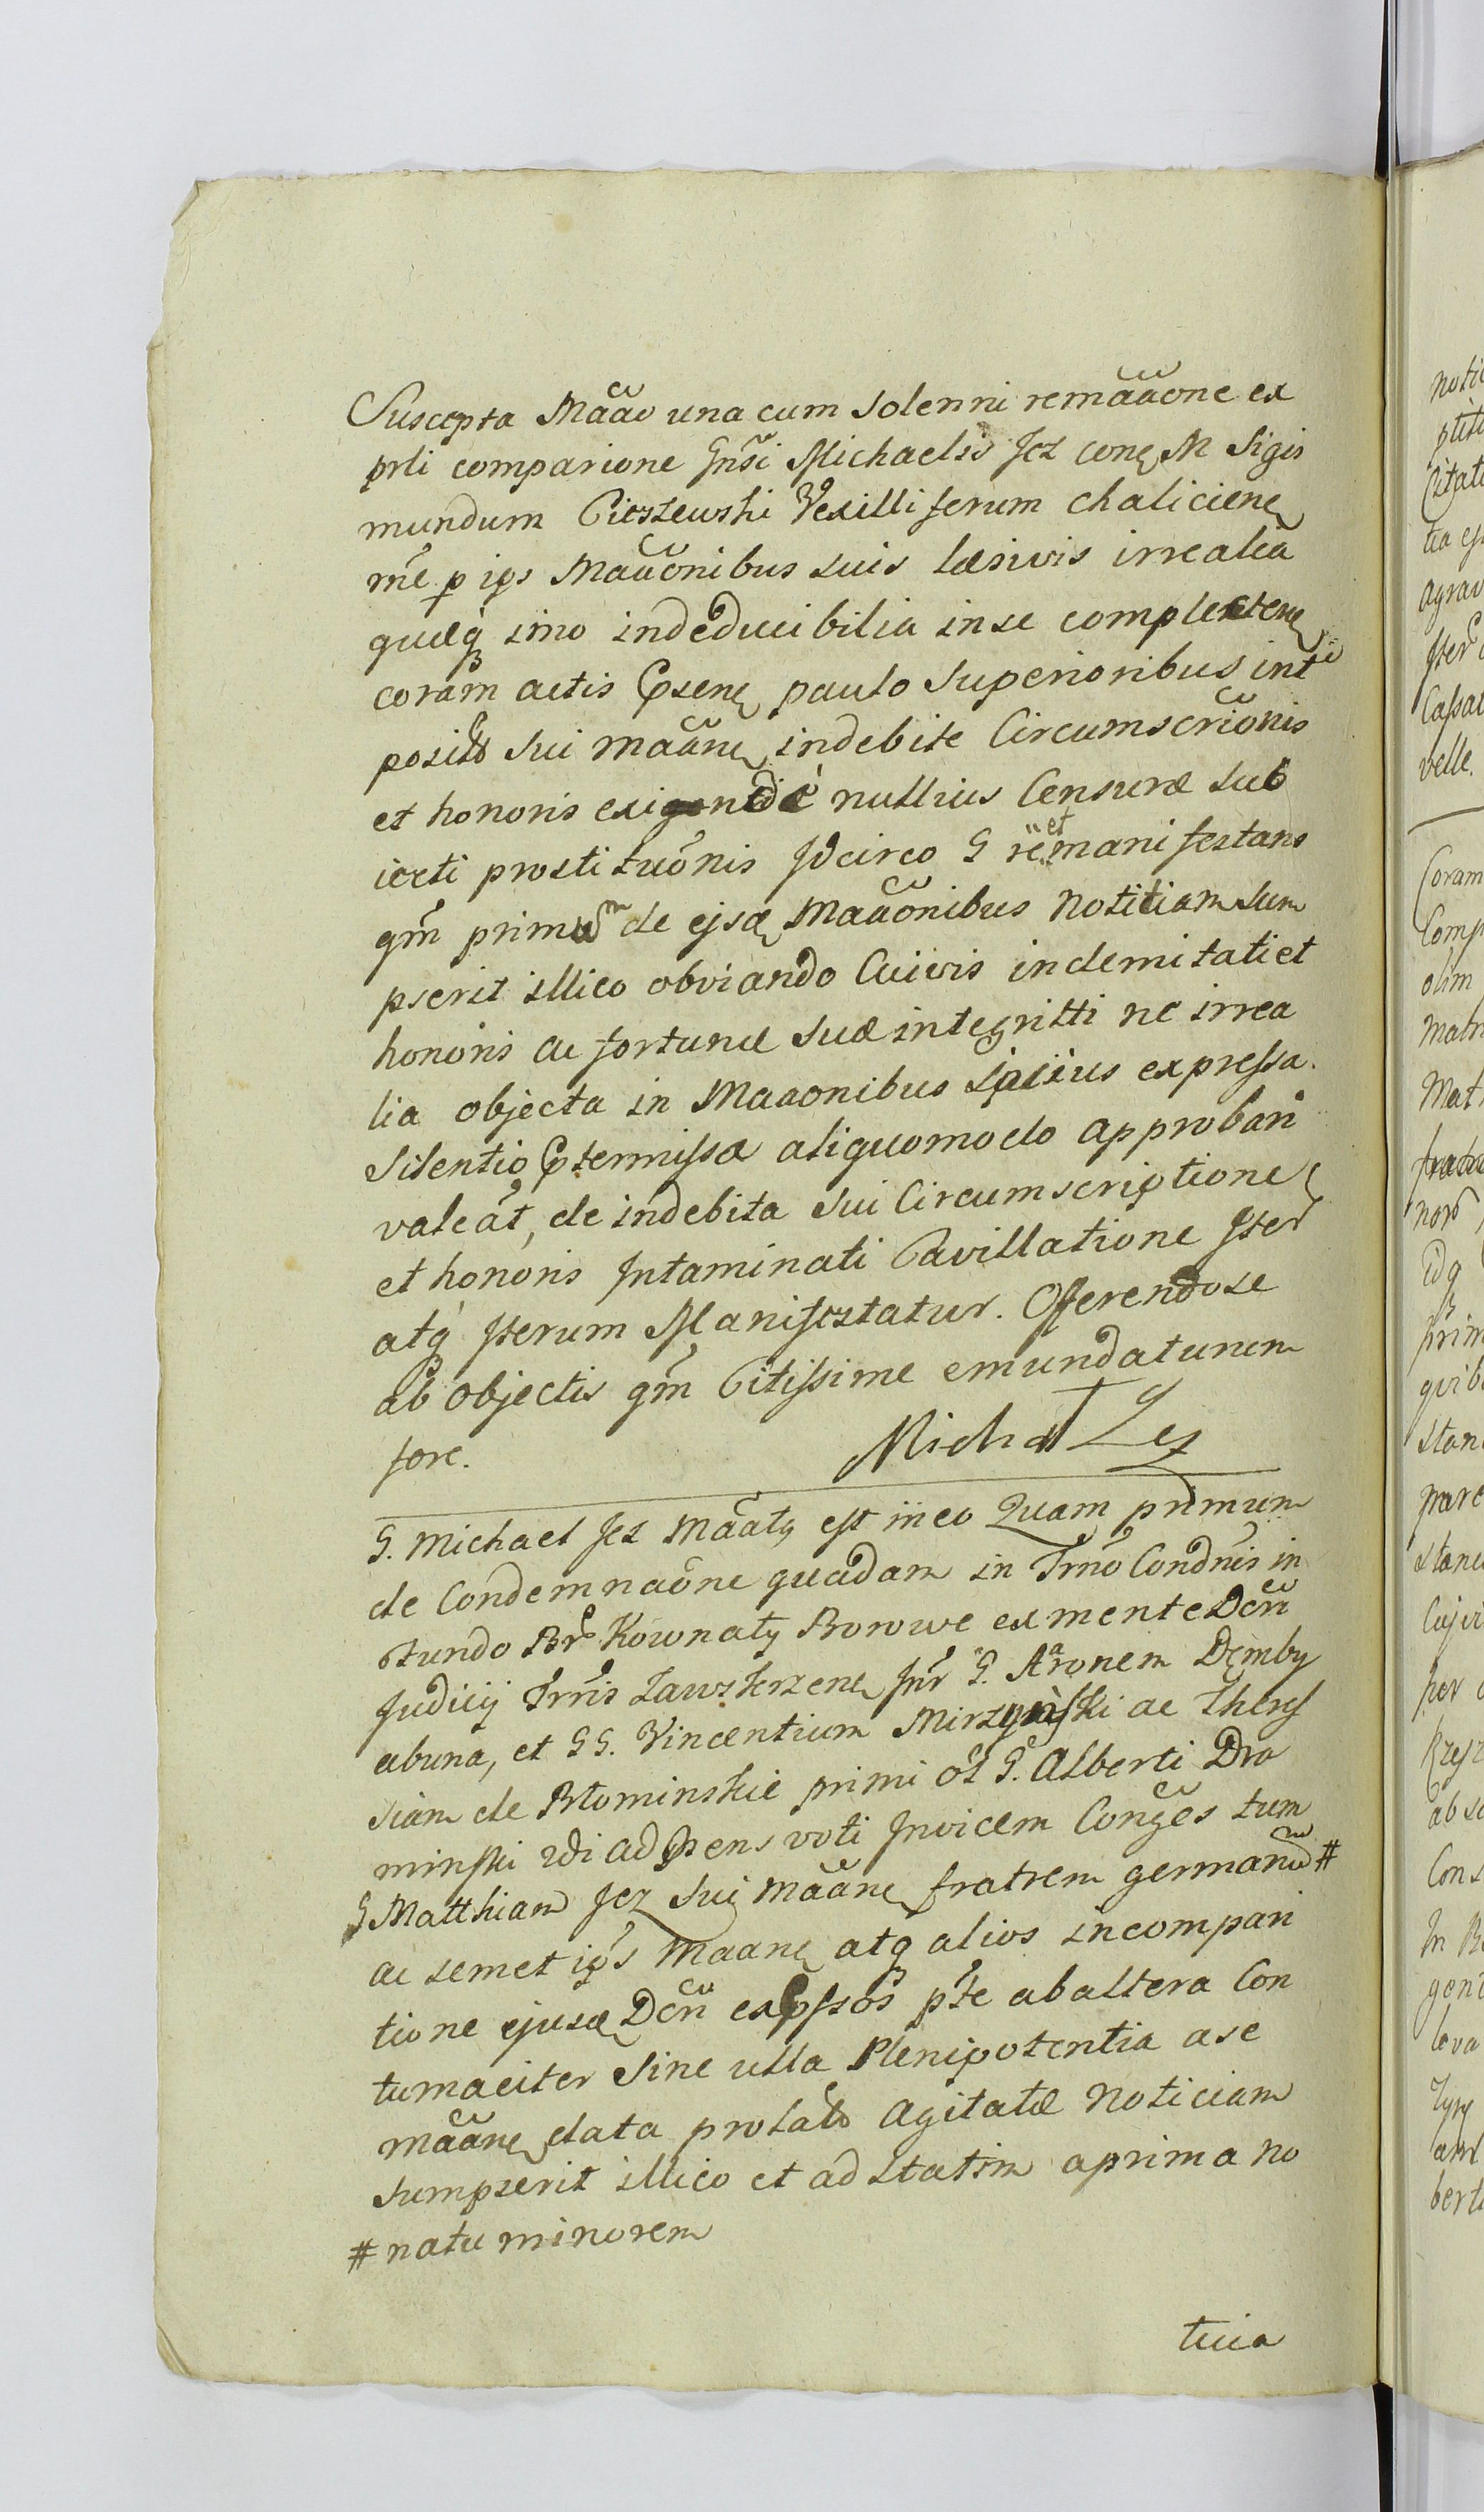 Suscepta Maãõ una cum solenni remãaõne ex
prli comparione Gnsi Michaelis Jez con M Sigis
mundum Cieszewski Vexilliferum Chalicien
me p ips Maãonibus suis læsivis irrealia
quæq imo indeducibilia in se complecten
coram actis Psen paulo superioribus int
posit sui maãn indebite Circumscriõnis
et honoris nullius Censuræ sub
iecti prostituõnis Idcirco G et remanifestans
qm primum de ejsd Maãonibus notitiam sum
pserit illico obviando Cuivis indemitati et
honoris ac fortunæ suæ integritti ne irrea
lia objecta in Maaonibus ipsius expressa
Silentio Ptermissa aliquomodo approbari
valeat, de indebita sui Circumscriptione
et honoris Intaminati Cavillatione Iter
atq Iterum Manifestatur. Offerendo se
ab objectis qm Citissime emundaturum
fore. Michał Jez
G. Michael Jez Maãty est in eo Quam primum
de Condemnaõne quadam in Trno Condnis in
fundo Br Kownaty Borowe ex mente Dcri
Judicij Trris Zawskrzen Inr G. Aaronem Demby
abuna, et GG. Vincentium Mirzyński ac There
siam de Bromińskie primi ol G. Alberti Dro
miński 2di ad Psens voti Invicem Conges tum
G Matthiam Jez sui maãn fratrem germanum #
ac semet ips Maan atq alios in compari
tione ejusd Dcri expssos pte ab altera Con
tumaciter sine ulla Plenipotentia a se
maãn data prolat agitatæ noticiam
sumpserit illico et ad statim a prima no
# natu minorem
ticia
noti
Citat
agrav
Cassat
velle.
Coram
Comp
olim
matr
Mat
idq
prim
quib
stan
pare
stan
Cujvi
per
abs
Cons
In
gen
leva
bert